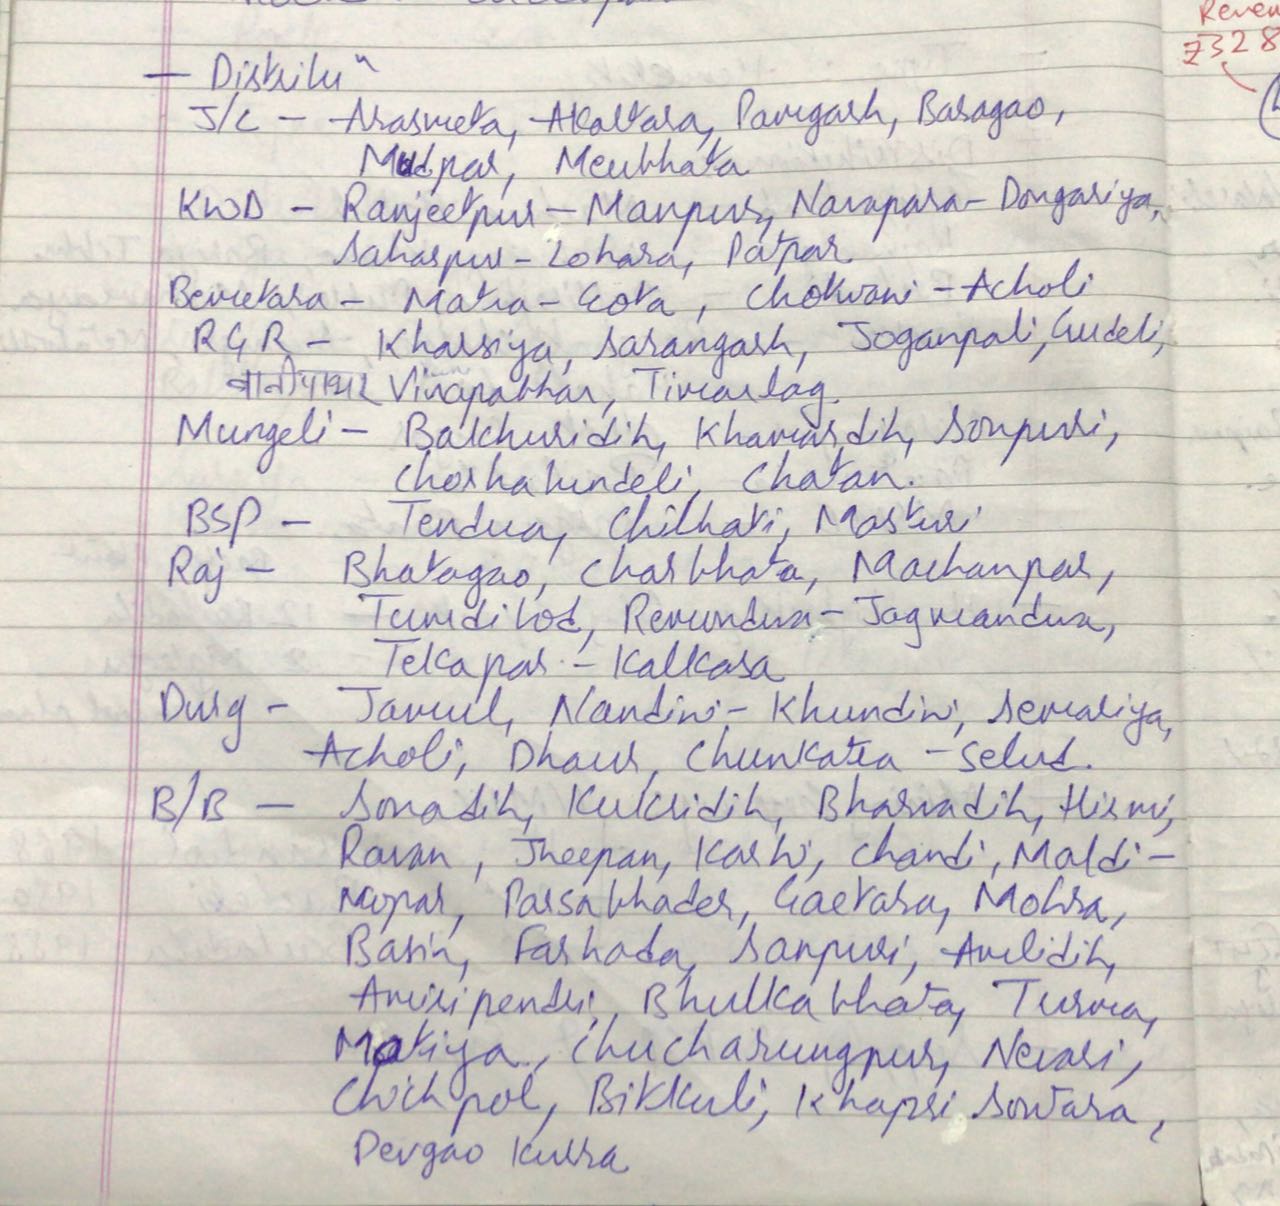 — Distribuⁿ
J/C – Arasmeta, Akaltara, Pamgarh, Baragao,
Mudpar, Meubhata
KWD – Ranjeetpur – Manpur, Navapara – Dongariya,
Sahaspur – Lohara, Patpar.
Bemetara – Matra – Gota, Chokvani – Acholi
RGR – Kharsiya, Sarangarh, Joganpali, Gudeli,
बानीपाथर Vinapakhar, Timarlag.
Mungeli – Balchuridih, Khamardih, Sonpuri,
Chorhahundeli, Chatan.
BSP – Tendua, Chilhati, Masturi
Raj – Bhatagao, Charbhata, Machanpar,
Tumdibod, Remundwa – Jagmandwa,
Telcapar – Kalkasa
Durg – Jamul, Nandini – Khundini, Semariya,
Acholi, Dhaur, Chunkatta – Selud.
B/B – Sonadih, Kukridih, Bharwadih, Hirmi,
Ravan, Jheepan, Karhi, Chandi, Maldi –
Mopar, Parsabhader, Gaetara, Mohra,
Basin, Farhada, Sanpuri, Amlidih,
Amiripendri, Bhulkabhata, Turma,
Matiya, Chucharungpur, Nevari,
Chichpol, Bikkuli, Khapri Sontara,
Devgao Kurra
7328